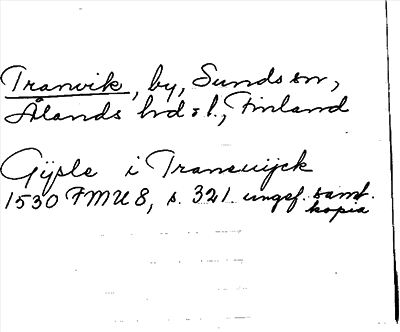 Tranvik, by, Sunds sn,
Ålands hd o l., Finland
Gÿsle i Transuijck
1530 FMU 8, s. 321. ungef. samt.
kopia